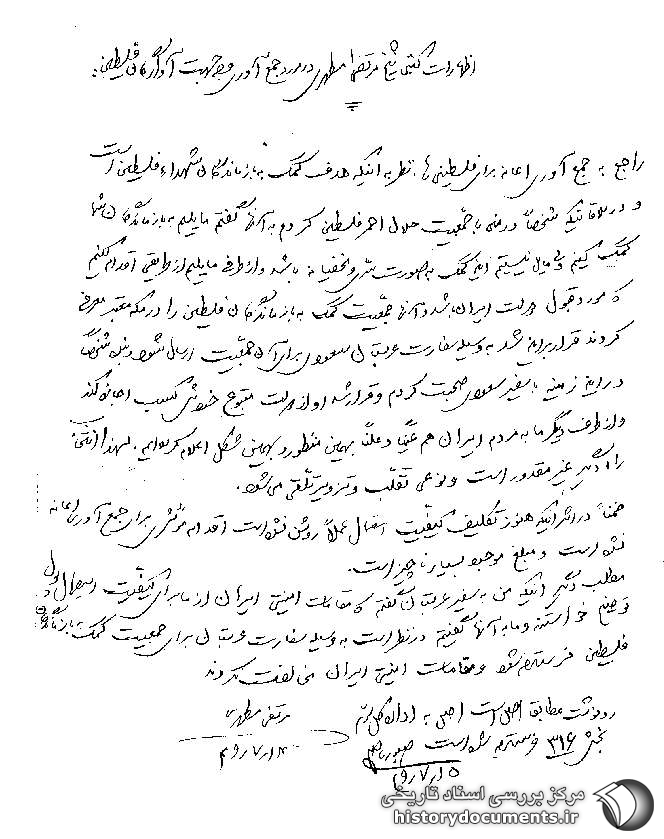 اظهارات کتبی شیخ مرتضی مطهری در مورد جمع آوری وجه جهت آوارگان فلسطین:
راجع به جمع آوری اعانه برای فلسطینی ها، نظر به اینکه هدف کمک به بازماندگان شهداء فلسطین است
و در ملاقاتیکه شخصاً در منی با جمعیت هلال احمر فلسطین کردم به آنها گفتم مایلیم به بازماندگان شما
کمک کنیم ولی مایل نیستیم این کمک به صورت سری و مخفیانه باشد و از طرفی مایلیم از طریقی اقدام کنیم
که مورد قبول دولت ایران باشد و آنها جمعیت کمک به بازماندگان فلسطین را در مکه معتبر معرفی
کردند قرار براین شد به وسیله سفارت عربستان سعودی برای آن جمعیت ارسال شود و بنده شخصاً
در این زمینه با سفیر سعودی صحبت کردم و قرار شد او از دولت متبوع خودش کسب اجازه کند
و از طرف دیگر ما به مردم ایران هم عیناً و علناً بهمین منظور و بهمین شکل اعلام کرده‌ایم. لهذا از نظر
راه دیگر غیر مقدور است و نوعی تقلب و تزویر تلقی می شود.
ضمناً در اثر اینکه هنوز تکلیف کیفیت ارسال عملاً روشن نشده است اقدام مؤثری برای جمع آوری اعانه
نشده است و مبلغ موجود بسیار ناچیز است.
مطلب دیگر اینکه من به سفیر عربستان گفتم که مقامات امنیتی ایران از ما برای کیفیت ارسال پول
توضیح خواستند و ما به آنها گفتیم در نظر است به وسیله سفارت عربستان برای جمعیت کمک به بازماندگان
فلسطین فرستاده شود و مقامات امنیتی ایران مخالفت نکردند
مرتضی مطهری
۴۹/۷/۱۴
رونوشت مطابق اصل است اصل به اداره کل سوم
بخش ۳۱۶ فرستاده شده است
۴۹/۷/۱۵
مرکز بررسی اسناد تاریخی
historydocuments.ir